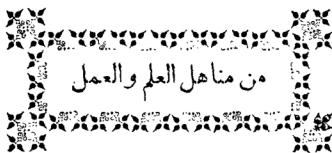 من مناهل العلم والعمل